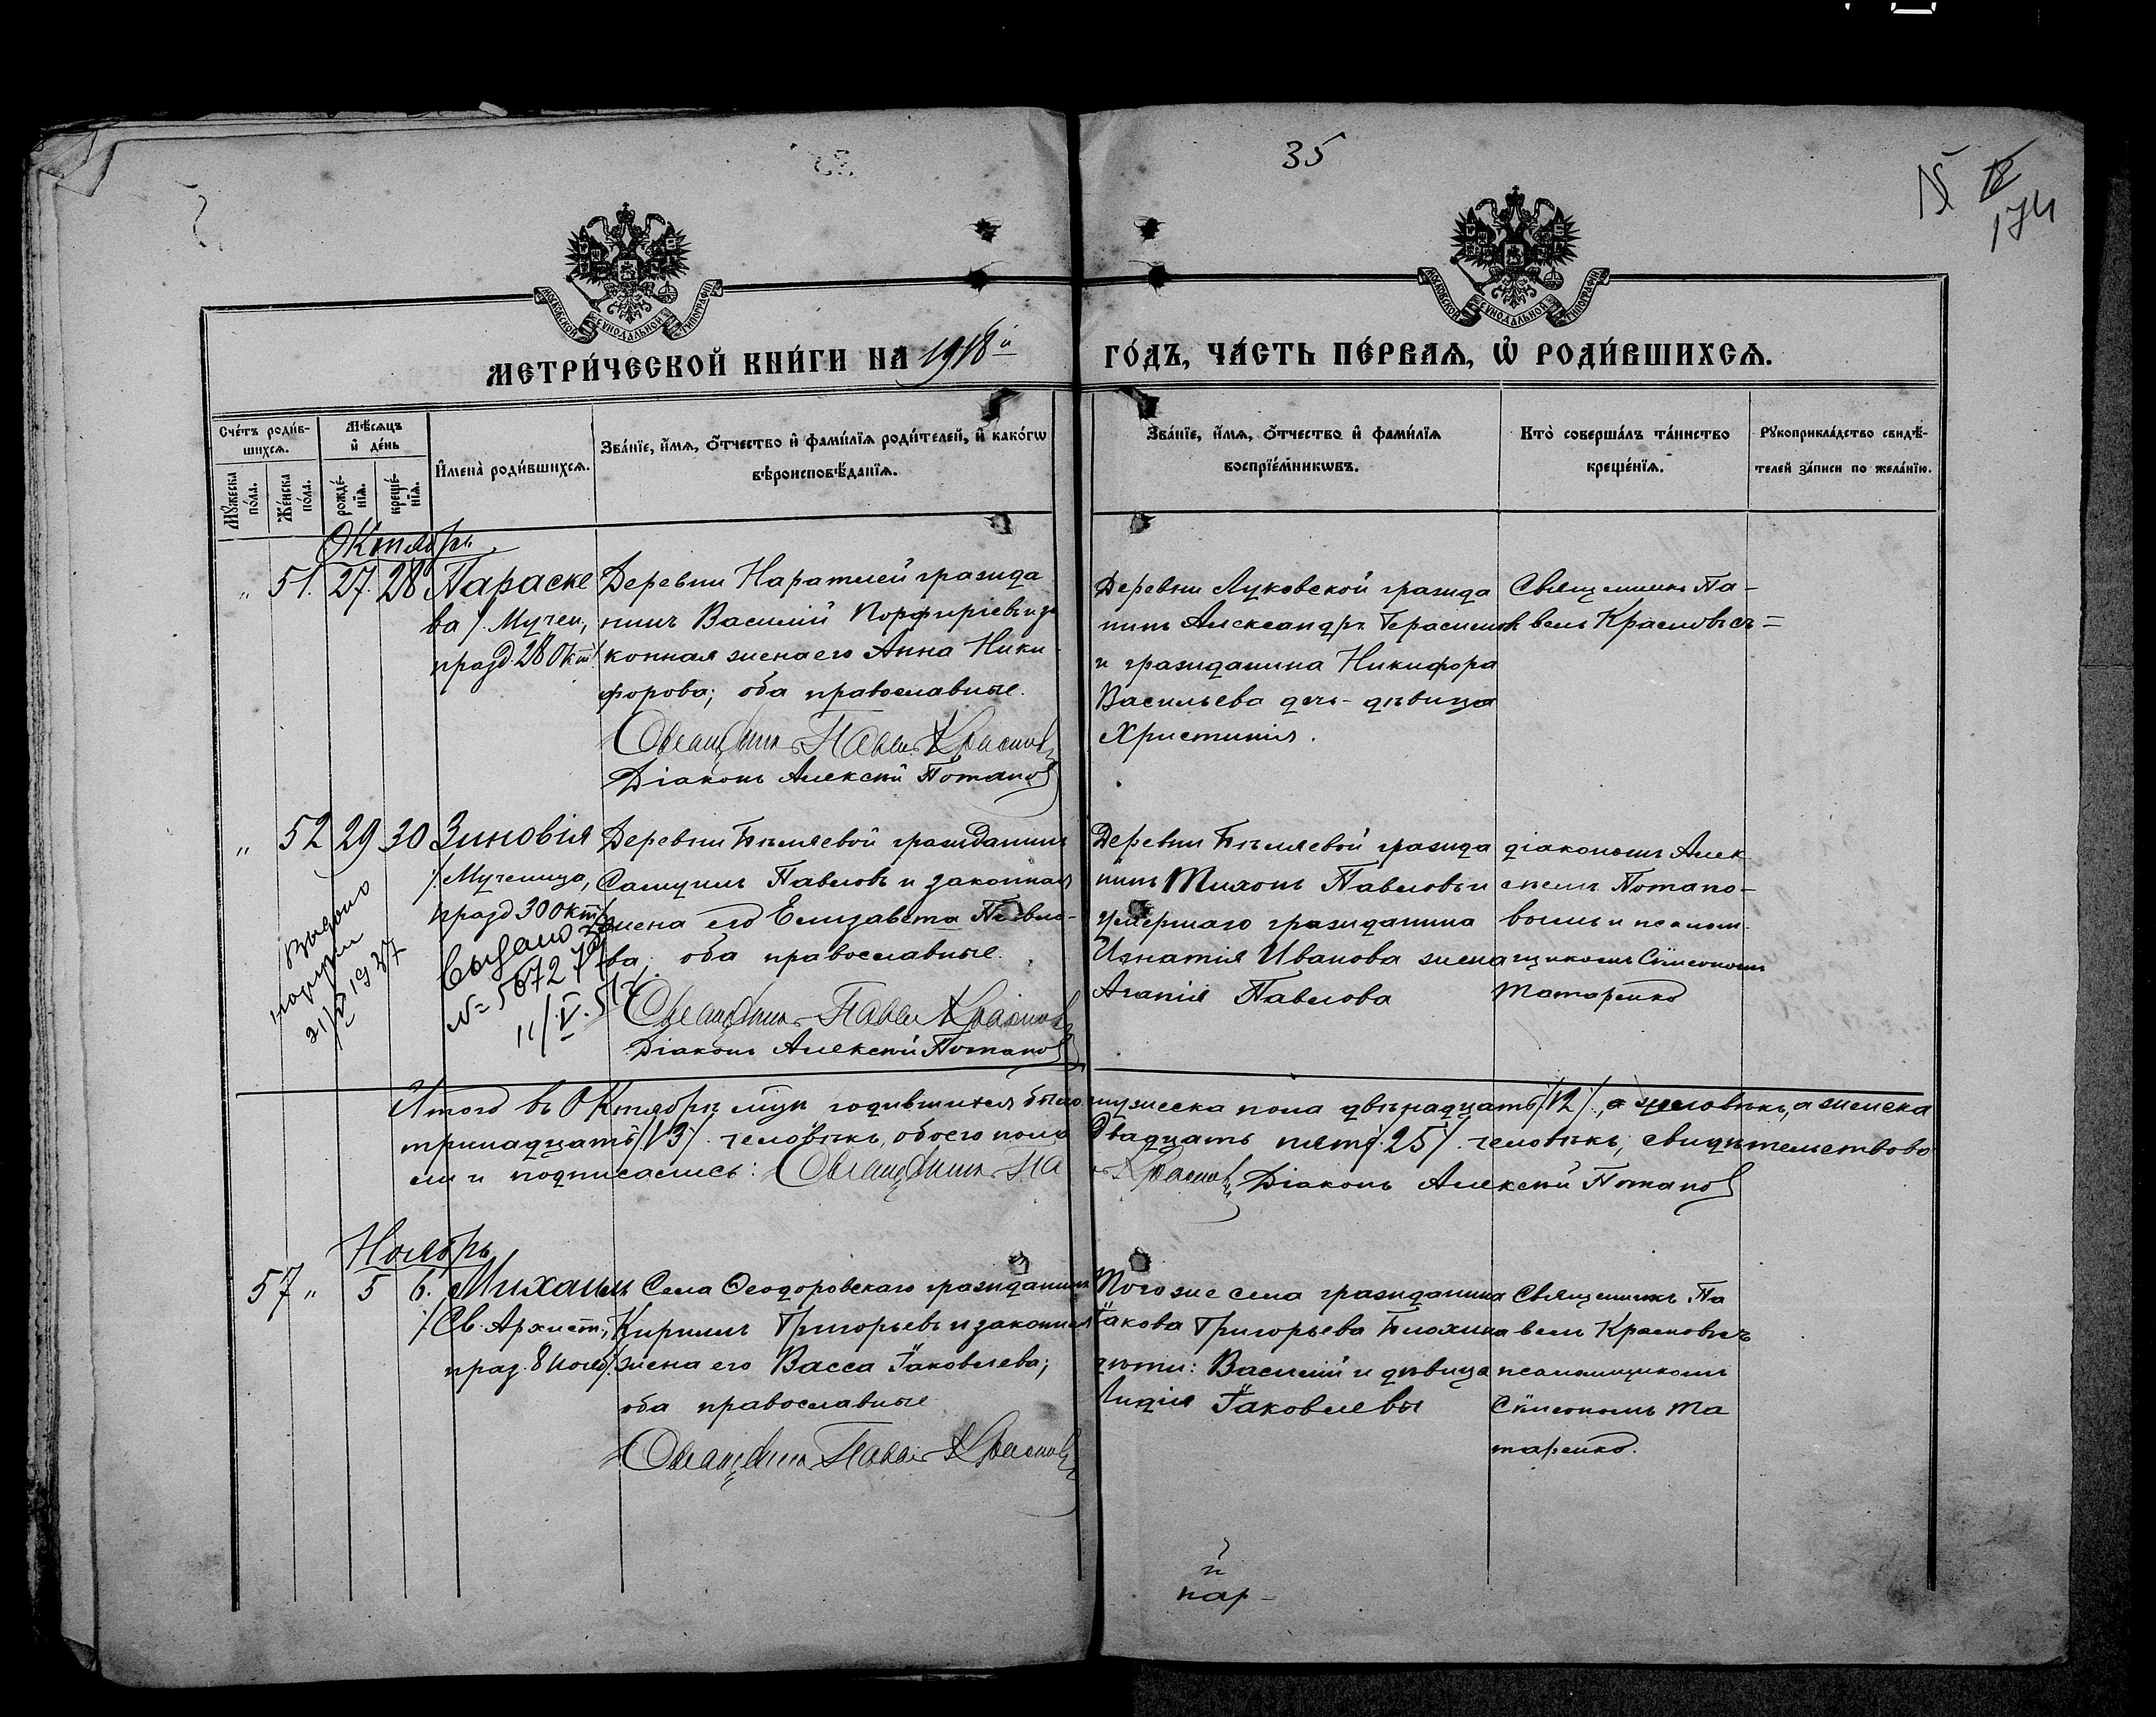 35
174
МОСКОВСКОЙ СѴНОДАЛЬНОЙ ТИПОГРАФІИ
МОСКОВСКОЙ СѴНОДАЛЬНОЙ ТИПОГРАФІИ
МЕТРИ́ЧЕСКОЙ КНИ́ГИ НА 1918й
ГО́ДЪ, ЧА́СТЬ ПЕ́РВАѦ, Ѡ҆ РОДИ́ВШИХСѦ.
Сче́тъ роди́в-
шихсѧ.
Мѣ́сѧцъ
и҆ де́нь
Мꙋ́жеска по́ла.
Же́нска по́ла.
рожде́-нїѧ.
креще́-нїѧ.
И҆мена̀ роди́вшихсѧ.
Зва́нїе, и҆́мѧ, ѻ҆́тчество и҆ фами́лїѧ роди́телей, и҆ како́гѡ
вѣроисповѣ́данїѧ.
Зва́нїе, и҆́мѧ, ѻ҆́тчество и҆ фами́лїѧ
воспрїе́мникѡвъ.
Кто̀ соверша́лъ та́инство
креще́нїѧ.
Рꙋкоприкла́дство свидѣ́-
телей за́писи по жела́нїю.
Октябрь
" 51. 27. 28 Параске
ва /. Мучен.,
празд. 28 Окт./
Деревни гражда
нинъ Василій Порфирьевъ и за
конная жена его Анна Ники-
форова; оба православные.
Священникъ Павелъ Красновъ
Діаконъ Алексій Потаповъ
Деревни Луковской гражда
нинъ Александръ Герасимовъ
и гражданина Никифора
Васильева дочь - дѣвица
Христинія.
Священникъ Па-
велъ Красновъ съ =
" 52 29 30 Зиновія
/. Мученица,
празд 30 Окт/
Выдано
21/V 1927
Выдано
№ 5672
11/V.51 г.
Деревни Бѣляевой гражданинъ
Самуилъ Павловъ и законная
жена его Елизавета Павло-
ва; оба православные.
Священникъ Павелъ Красновъ
Діаконъ Алексій Потаповъ
Деревни Бѣляевой гражда
нинъ Тихонъ Павловъ и
умершаго гражданина
Игнатія Иванова жена
Агапія Павлова
діакономъ Алек
сѣемъ Потапо-
вымъ и псалом-
щикомъ Сѵмеономъ
Татаренко
Итого въ Октябрѣ мцѣ родившихся было мужеска пола двѣнадцать /12/. человѣкъ, а женска
тринадцать /13/. человѣкъ, обоего пола двадцать пять /.25/. человѣкъ; свидѣтельствова
ли и подписались: Священникъ Па Красновъ Діаконъ Алексій Потаповъ
Ноябрь
57 " 5 6. Михаилъ
/Св. Архист.,
праз. 8 Нояб/.
Села Ѳеодоровскаго гражданинъ
Кириллъ Григорьевъ и законная
жена его Васса Іаковлева;
оба православные
Священникъ Павелъ Красновъ
Того же села гражданина
Іакова Григорьева Блохина
дѣти: Василій и дѣвица
Лидія Іаковлевы
Священникъ Па
велъ Красновъ съ
псаломщикомъ
Сѵмеономъ Та
таренко.